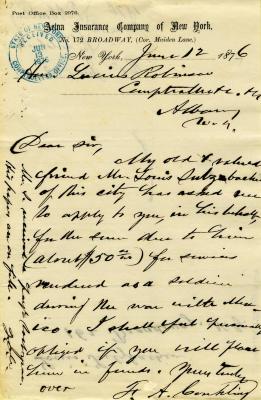 Post Office Box 2976.
Aetna Insurance Company of New York,
No. 172 BROADWAY, (Cor. Maiden Lane.)
New York, June 12 1876
RECEIVED
JUN
Hon Lucius Robinson
Comptroller &c
Albany
N.Y.
Dear Sir,
My old & valued
friend Mr. Louis
of this city has asked me
to apply to you, in his behalf,
for the sum due to him
(about $50 00) for services
rendered as a soldier
during the war with Mex-
ico. I shall feel personally
obliged if you will place
him in funds. Yours truly
over F. A. Conkling